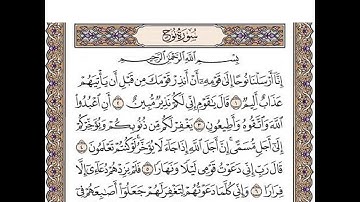 سُورَةُ نُوحٍ
بِسْمِ ٱللَّهِ ٱلرَّحْمَٰنِ ٱلرَّحِيمِ
إِنَّآ أَرْسَلْنَا نُوحًا إِلَىٰ قَوْمِهِۦٓ أَنْ أَنذِرْ قَوْمَكَ مِن قَبْلِ أَن يَأْتِيَهُمْ
عَذَابٌ أَلِيمٌ ١ قَالَ يَٰقَوْمِ إِنِّى لَكُمْ نَذِيرٌ مُّبِينٌ ٢ أَنِ ٱعْبُدُوا۟
ٱللَّهَ وَٱتَّقُوهُ وَأَطِيعُونِ ٣ يَغْفِرْ لَكُم مِّن ذُنُوبِكُمْ وَيُؤَخِّرْكُمْ
إِلَىٰٓ أَجَلٍ مُّسَمًّى إِنَّ أَجَلَ ٱللَّهِ إِذَا جَآءَ لَا يُؤَخَّرُ لَوْ كُنتُمْ تَعْلَمُونَ ٤
قَالَ رَبِّ إِنِّى دَعَوْتُ قَوْمِى لَيْلًا وَنَهَارًا ٥ فَلَمْ يَزِدْهُمْ دُعَآءِىٓ إِلَّا
فِرَارًا ٦ وَإِنِّى كُلَّمَا دَعَوْتُهُمْ لِتَغْفِرَ لَهُمْ جَعَلُوٓا۟ أَصَٰبِعَهُمْ فِىٓ